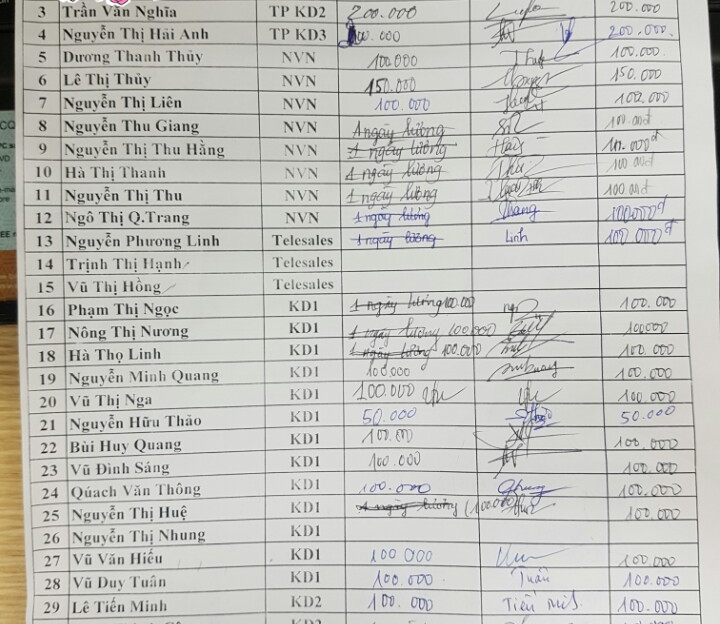 3 Trần Văn Nghĩa TP KD2 200.000 200.000
4 Nguyễn Thị Hải Anh TP KD3 200.000
5 Dương Thanh Thủy NVN 100.000 Thuỷ 100.000
6 Lê Thị Thủy NVN 150.000 150.000
7 Nguyễn Thị Liên NVN 100.000 100.000
8 Nguyễn Thu Giang NVN 1 ngày lương 100.000đ
9 Nguyễn Thị Thu Hằng NVN 1 ngày lương 100.000đ
10 Hà Thị Thanh NVN 1 ngày lương 100.000đ
11 Nguyễn Thị Thu NVN 1 ngày lương 100.000đ
12 Ngô Thị Q.Trang NVN 1 ngày lương 100.000đ
13 Nguyễn Phương Linh Telesales 1 ngày lương Linh 100.000đ
14 Trịnh Thị Hạnh Telesales
15 Vũ Thị Hồng Telesales
16 Phạm Thị Ngọc KD1 1 ngày lương 100.000 100.000
17 Nông Thị Nương KD1 1 ngày lương 100.000 100000
18 Hà Thọ Linh KD1 1 ngày lương 100.000 100.000
19 Nguyễn Minh Quang KD1 100.000 100.000
20 Vũ Thị Nga KD1 100.000 100.000
21 Nguyễn Hữu Thảo KD1 50.000 50.000
22 Bùi Huy Quang KD1 100.000 100.000
23 Vũ Đình Sáng KD1 100.000 100.000
24 Qúach Văn Thông KD1 100.000 100.000
25 Nguyễn Thị Huệ KD1 1 ngày lương (100.000) 100.000
26 Nguyễn Thị Nhung KD1
27 Vũ Văn Hiếu KD1 100 000 100.000
28 Vũ Duy Tuân KD1 100.000 Tuân 100.000
29 Lê Tiến Minh KD2 100.000 Tiến 100.000